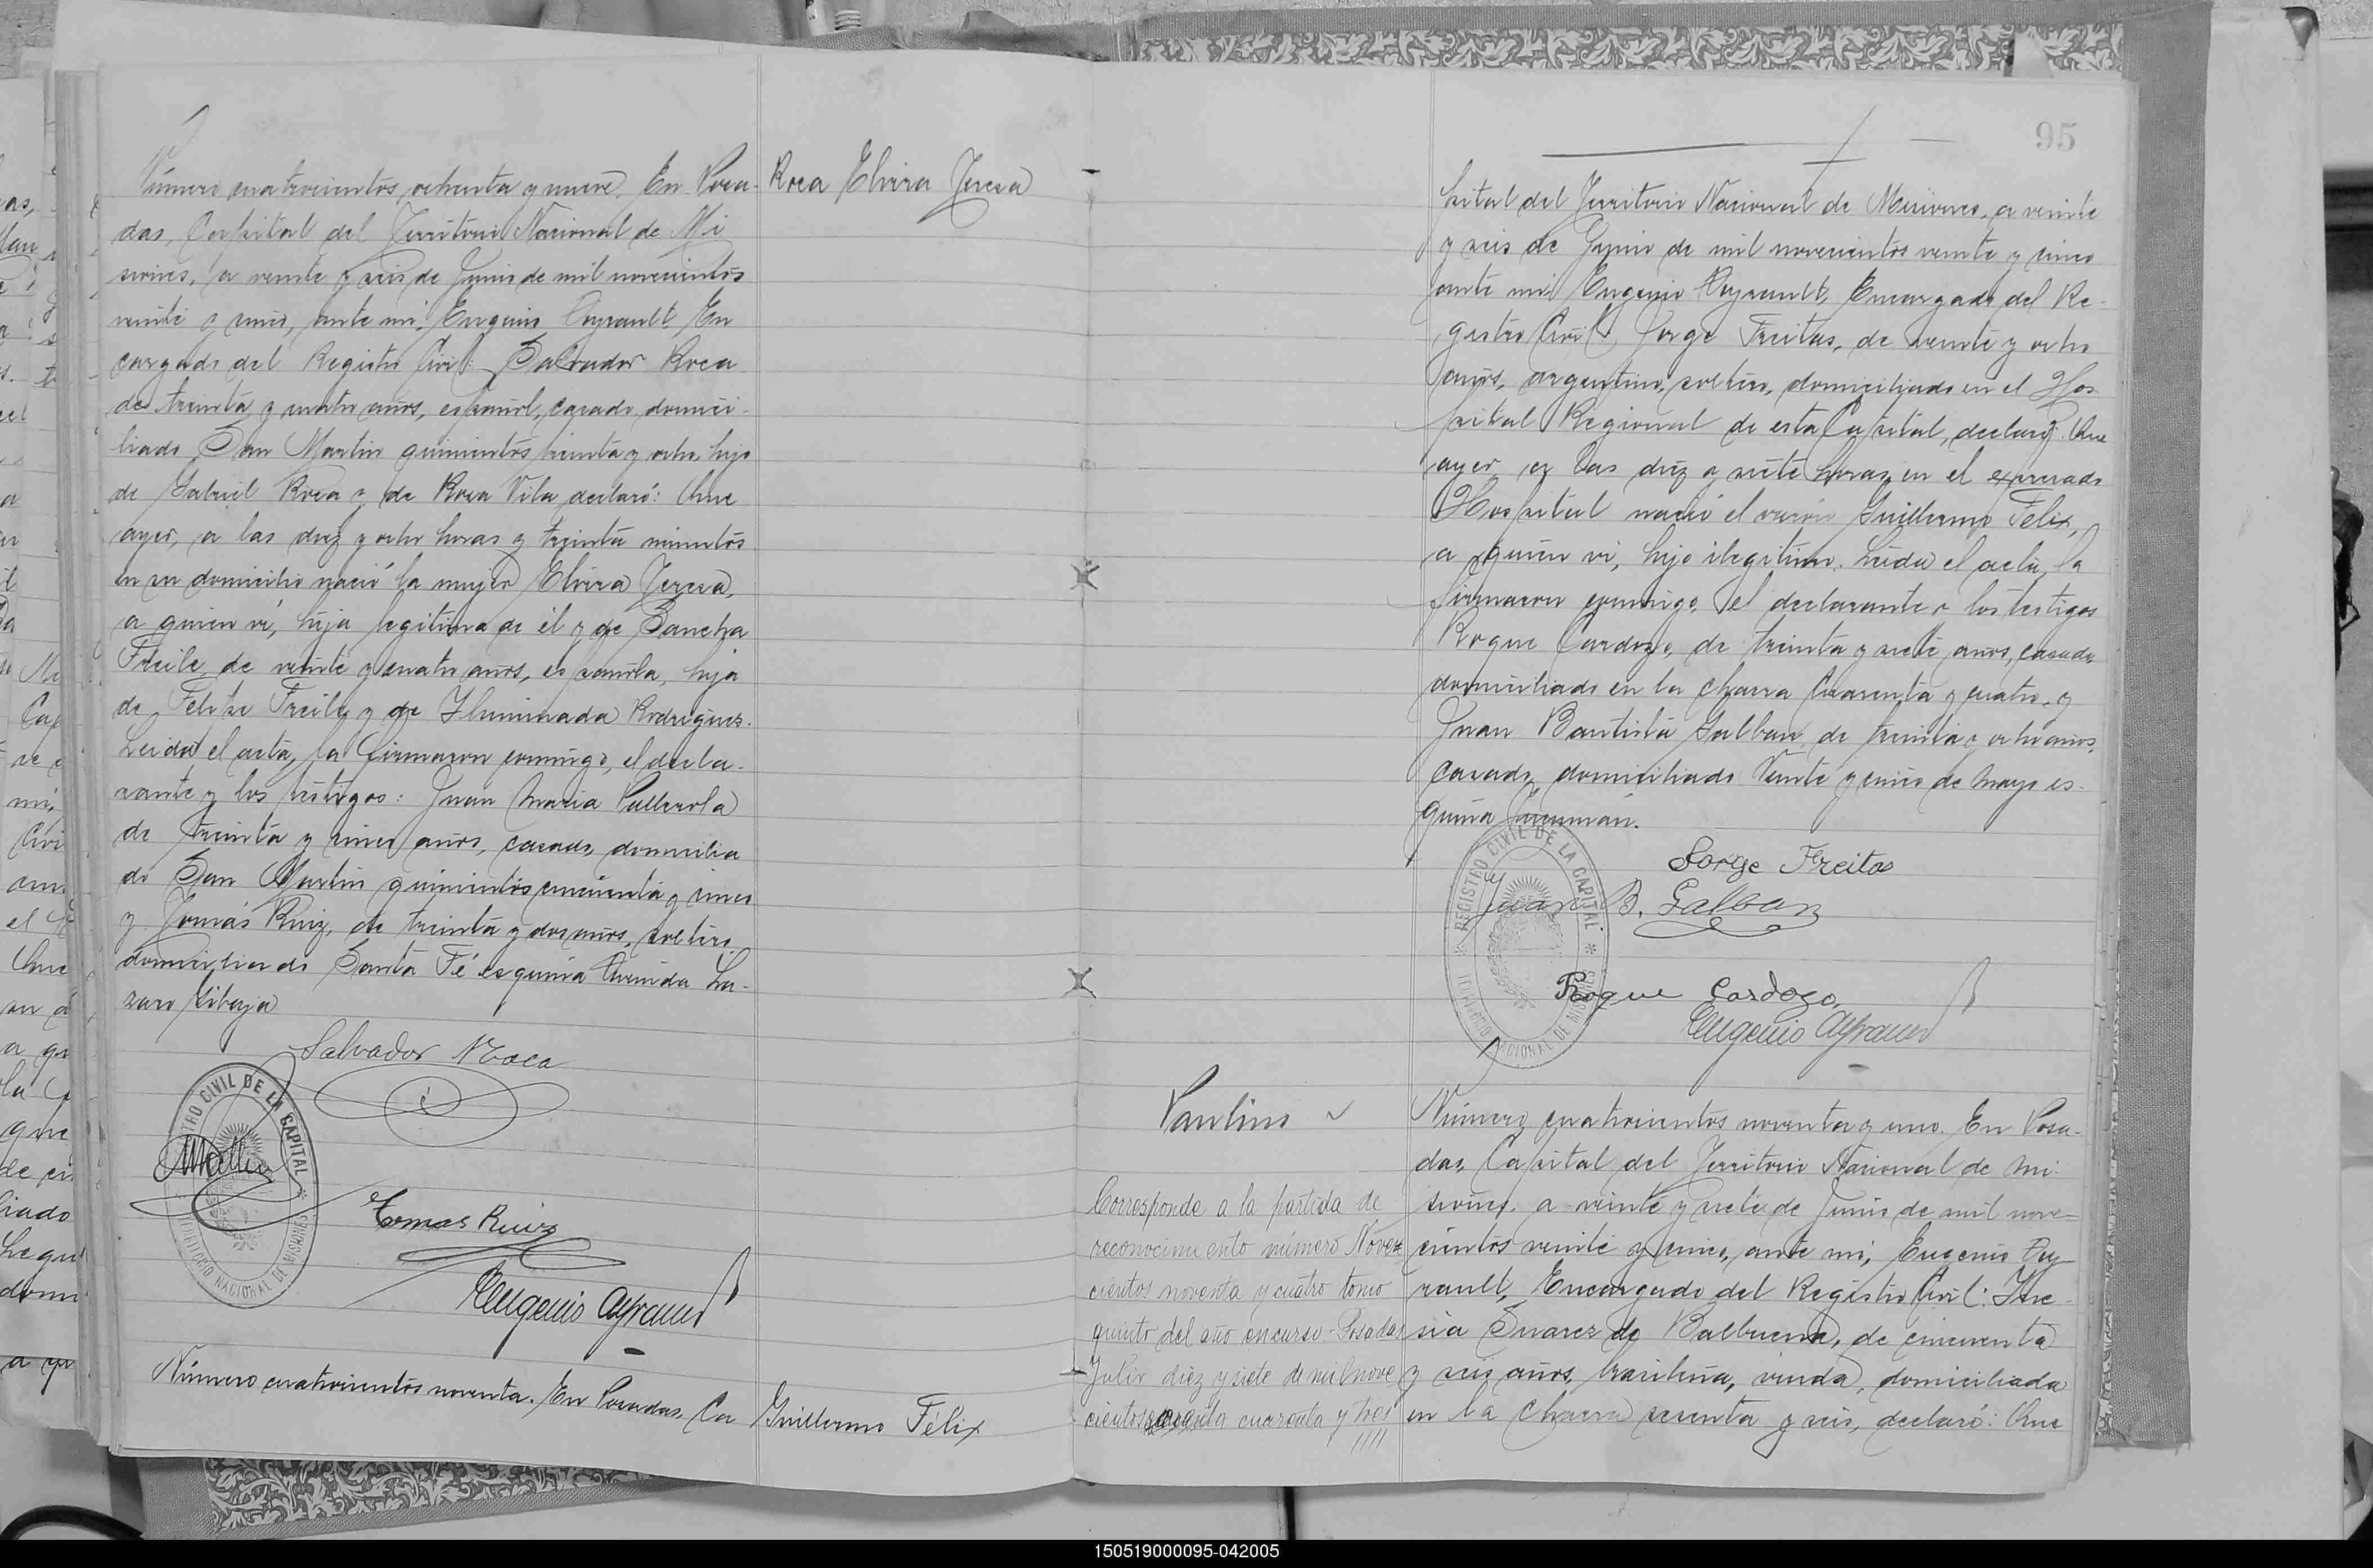 Número cuatrocientos ochenta y nueve. En Posa-
das, Capital del Territorio Nacional de Mi
siones, a veinte y seis de Junio de mil novecientos
veinte y cinco, ante mi, Eugenio Ayrault, En
cargado del Registro Civil: Salvador Roca
de treinta y cuatro años, español, casado, domici-
liado San Martin quinientos treinta y ocho, hijo
de Gabriel Roca y de Rosa Vila, declaró: Que
ayer, a las diez y ocho horas y treinta minutos
en su domicilio nació la mujer Elvira Teresa,
a quien vi, hija legitima de él y de Sancha
Freile, de veinte y cuatro años, española, hija
de Felipe Freile y de Iluminada Rodriguez.
Leida el acta, la firmaron conmigo, el decla-
rante y los testigos: Juan Maria
de treinta y cinco años, casado, domicilia
do San Martin quinientos cincuenta y cinco
y Tomás Ruiz, de treinta y dos años, soltero,
domiciliado Santa Fé esquina Avenida La-
zaro Gibaja
Roca Elvira Teresa
Salvador Roca
REGISTRO CIVIL DE LA CAPITAL
TERRITORIO NACIONAL DE MISIONES
Tomas Ruiz
Eugenio Ayrault
Número cuatrocientos noventa. En Posadas, Ca
Guillermo Félix
95
pital del Territorio Nacional de Misiones, a veinte
y seis de Junio de mil novecientos veinte y cinco
ante mi, Eugenio Ayrault, Encargado del Re-
gistro Civil: Jorge Freitas, de veinte y ocho
años, argentino, soltero, domiciliado en el Hos
pital Regional de esta Capital, declaró: Que
ayer, a las diez y siete horas, en el expresado
Hospital nació el varón Guillermo Felix,
a quien vi, hijo ilegitimo. Leida el acta, la
firmaron conmigo, el declarante y los testigos
Roque Cardozo, de treinta y siete años, casado,
domiciliado en la chacra cuarenta y cuatro, y
Juan Bautista Galban, de treinta y ocho años,
casado, domiciliado Veinte y cinco de Mayo es-
quina Tucumán.
Jorge Freitas
Juan B. Galban
REGISTRO CIVIL DE LA CAPITAL
TERRITORIO NACIONAL DE MISIONES
Roque Cardozo,
Eugenio Ayrault
Paulino
Corresponde a la partida de
reconocimiento número Nove=
cientos noventa y cuatro tomo
quinto del año en curso. Posadas
Julio diez y siete de mil nove
cientos cuarenta y tres
Número cuatrocientos noventa y uno. En Posa-
das, Capital del Territorio Nacional de Mi-
siones, a veinte y siete de Junio de mil nove=
cientos veinte y cinco, ante mi, Eugenio Ay-
rault, Encargado del Registro Civil: Ine-
sia Suarez de Balbuena, de cincuenta
y seis años, brasileña, viuda, domiciliada
en la chacra sesenta y seis, declaró: Que
150519000095-042005